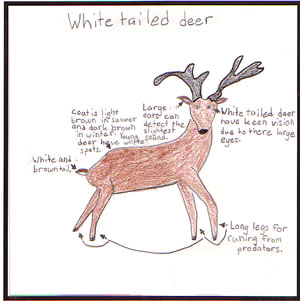 White tailed deer
Coat is light
brown in summer
and dark brown
in winter. Young
deer have white
spots.
Large
ears can
detect the
slightest
sound.
White tailed deer
have keen vision
due to there large
eyes.
White and
brown tail.
Long legs for
runing from
predators.